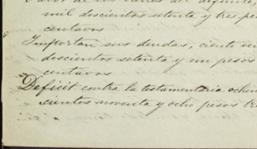 mil doscientos setenta y tres pe
centavos
Importan sus deudas, ciento
doscientos setenta y un pesos
centavos
Deficit contra la testamentaria ochen
cientos noventa y ocho pesos tre